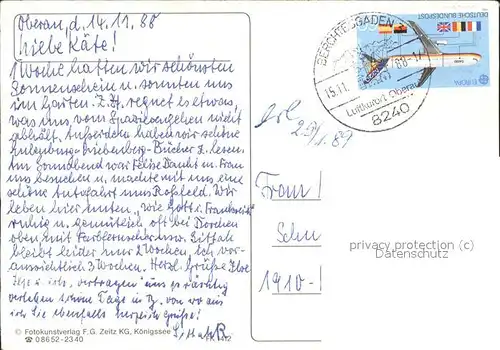 Oberau, d. 14.11.88
Liebe Käte!
1 Woche hatten wir schönsten
Sonnenschein u. sonnten uns
im Garten. Z.Zt. regnet es etwas,
was uns vom Spazierengehen nicht
abhält. Außerdem haben wir schöne
Bücher z. lesen.
Am Sonnabend war u. Frau
uns besuchen u. machte mit uns eine
schöne Autofahrt zum Roßfeld. Wir
leben hier unten, "wie Gott i. Frankreich"
ruhig u. gemütlich oft bei Dorchen
oben mit Farbfernseher usw.
bleibt leider nur 2 Wochen, ich vor-
aussichtlich 3 Wochen. Herzl. Grüße Ilse
Ilse u. ich "vertragen" uns prächtig
verleben schöne Tage in B. von wo aus
ich Sie ebenfalls herzlich grüße!
© Fotokunstverlag F.G. Zeitz KG, Königssee
☎ 08652-2340
DEUTSCHE BUNDESPOST
EUROPA
BERCHTESGADEN
15.11.
88-17
Luftkurort Oberau
8240
erl.
25/1.89
Frau
Schu
1910-
privacy protection (c)
Datenschutz